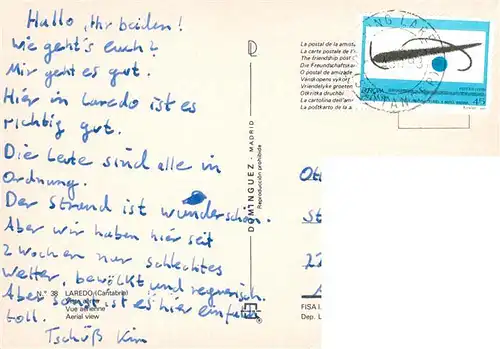 Hallo, Ihr beiden!
Wie geht's euch?
Mir geht es gut.
Hier in Laredo ist es
richtig gut.
Die Leute sind alle in
Ordnung.
Der Strand ist wunderschön.
Aber wir haben hier seit
2 Wochen nur schlechtes
Wetter, bewölkt und regnerisch.
Aber sonst ist es hier einfach
toll.
Tschüß Kim
N.º 38 LAREDO (Cantabria)
Vue aérienne
Aerial view
DOMINGUEZ - MADRID
Reproducción prohibida
La postal de la amist
La carte postale de l'
The friendship post
Die Freundschaftska
O postal de amizade
Vriendelijke groeten
La cartolina dell'am
EUROPA
45
Ott
St
22
FISA I.
Dep. L